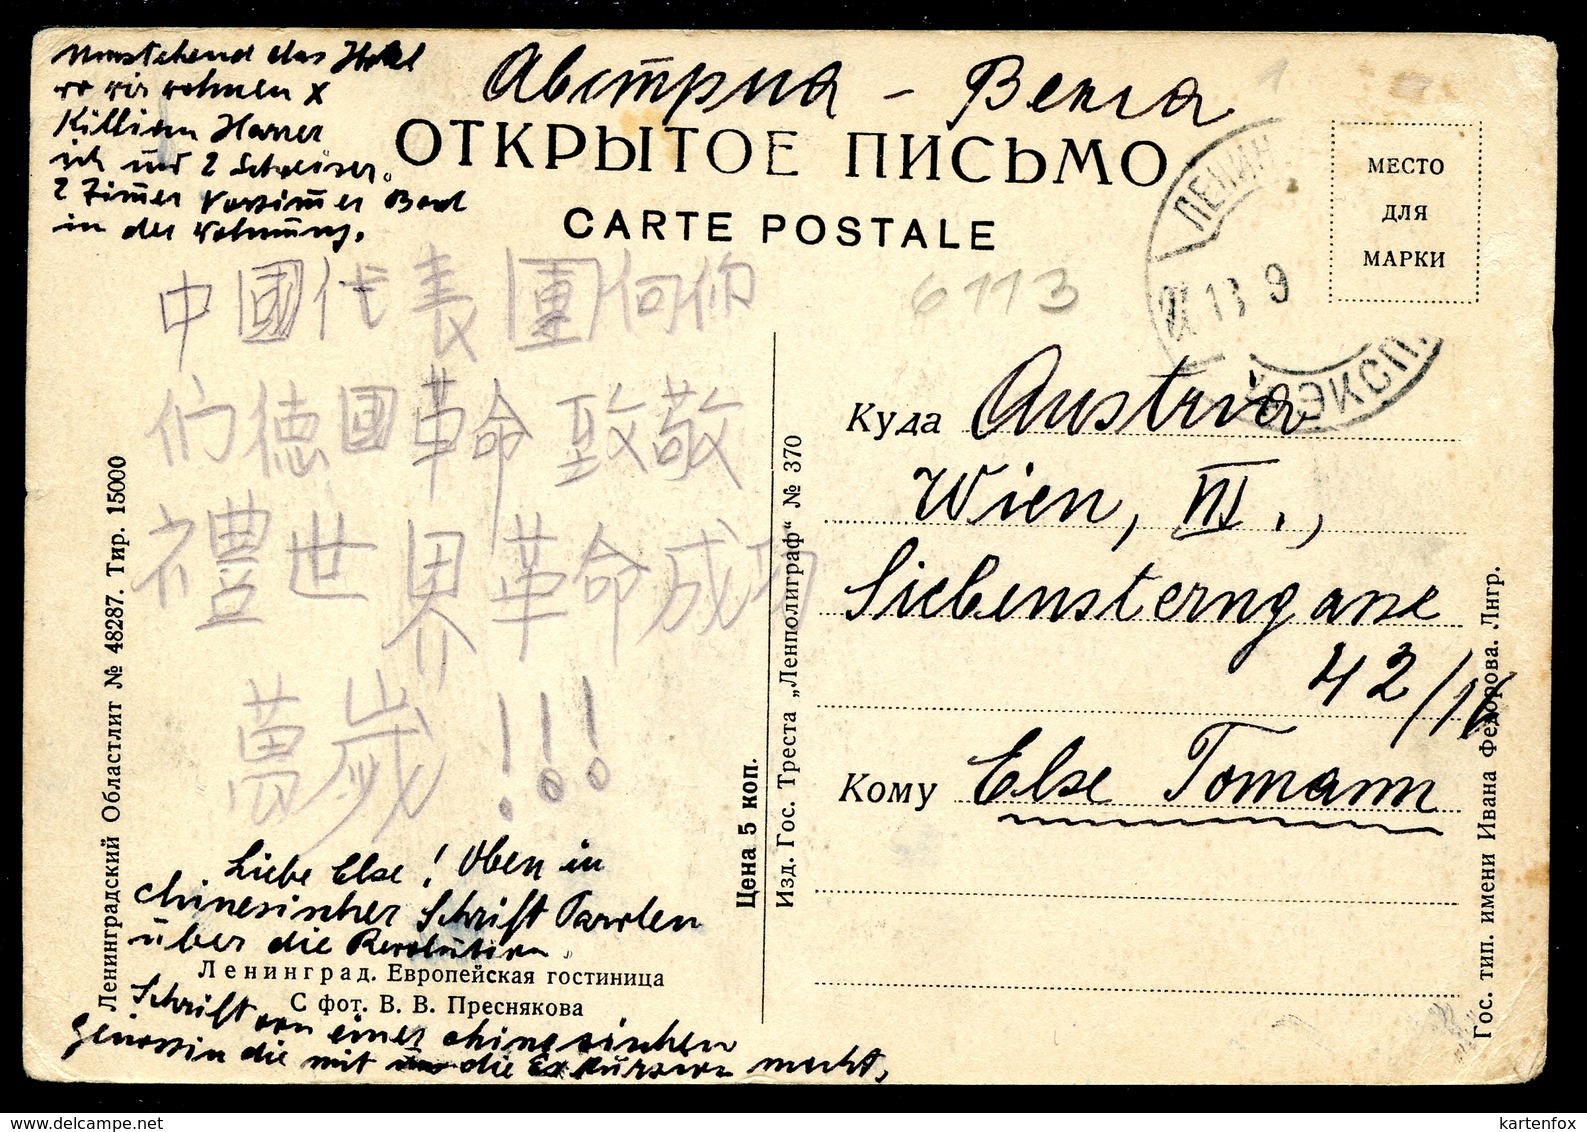 Umstehend das Hotel
wo wir wohnen x
Killian Harrer
ich und 2 Schweizer.
2 Zimmer Vorzimmer Bad
in der Wohnung.
Австриа - Вена
ОТКРЫТОЕ ПИСЬМО
CARTE POSTALE
МЕСТО
ДЛЯ
МАРКИ
ЛЕНИН
13 9
ЭКСП.
6113
中國代表團向你
们德國革命致敬
禮世界革命成功
萬歲!!!
Liebe Else! Oben in
chinesischer Schrift Parolen
über die Revolution
Ленинград. Европейская гостиница
С фот. В. В. Преснякова
Schrift von einer chinesischen
Genossin die mit uns die Exkursion macht,
Ленинградский Областлит № 48287. Тир. 15000
Цена 5 коп.
Изд. Гос. Треста „Ленполиграф“ № 370
Куда Austria
Wien, VII.,
Siebensterngasse
42/16
Кому Else Tomann
Гос. тип. имени Ивана Федорова. Лнгр.
kartenfox